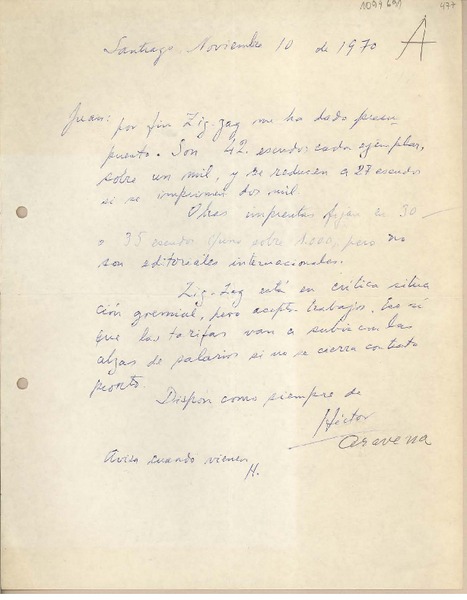 1099691
477
A
Santiago Noviembre 10 de 1970
Juan: por fin Zig-zag me ha dado presu-
puesto. Son 42. escudos cada ejemplar,
sobre un mil, y se reducen a 27 escudos
si se imprimen dos mil
Otras imprentas fijan en 30
o 35 escudos sobre 1.000, pero no
son editoriales internacionales.
Zig-Zag está en crítica situa
ción gremial, pero acepta trabajos. Eso sí
que las tarifas van a subir con las
alzas de salarios si no se cierra contrato
pronto.
Dispón como siempre de
Héctor
Aravena
Avisa cuando vienen
H.